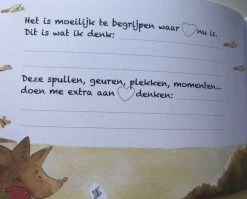 Het is moeilijk te begrijpen waar nu is.
Dit is wat ik denk:
Deze spullen, geuren, plekken, momenten...
doen me extra aan denken: